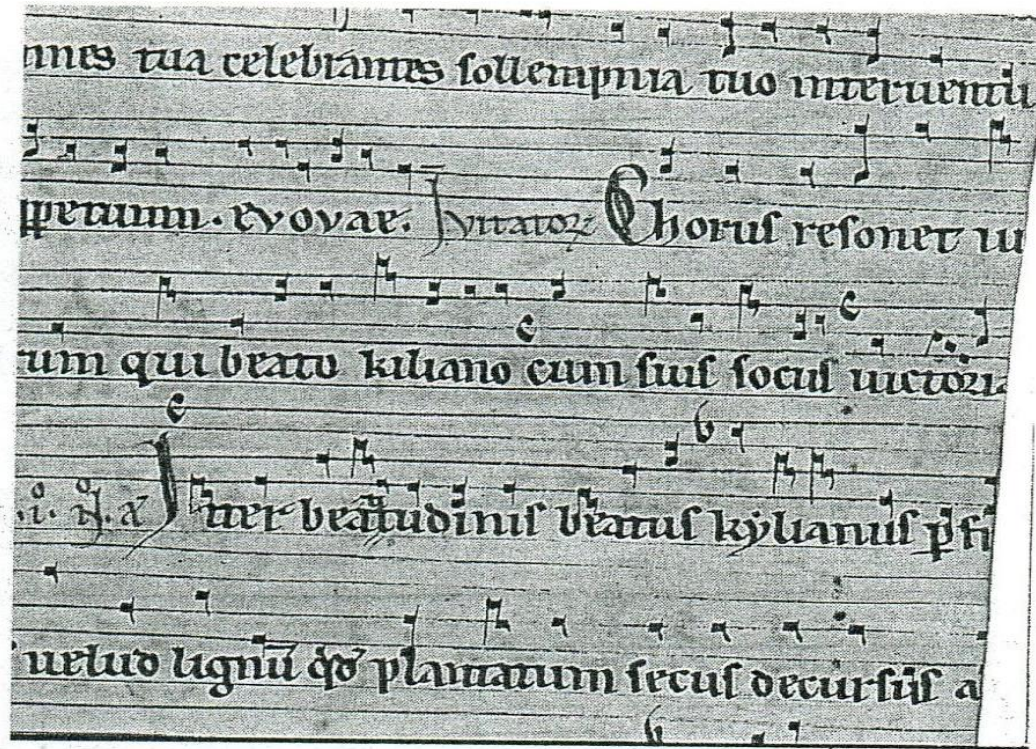 nnes tua celebrantes sollempnia tuo interuentu
ppetuum. evovae. Inuitator Chorus resonet iu
tum qui beato kiliano cum suis sociis uictoria
.i. N. a Iter beatitudinis beatus kylianus psti
uelud lignū qd plantatum secus decursus a